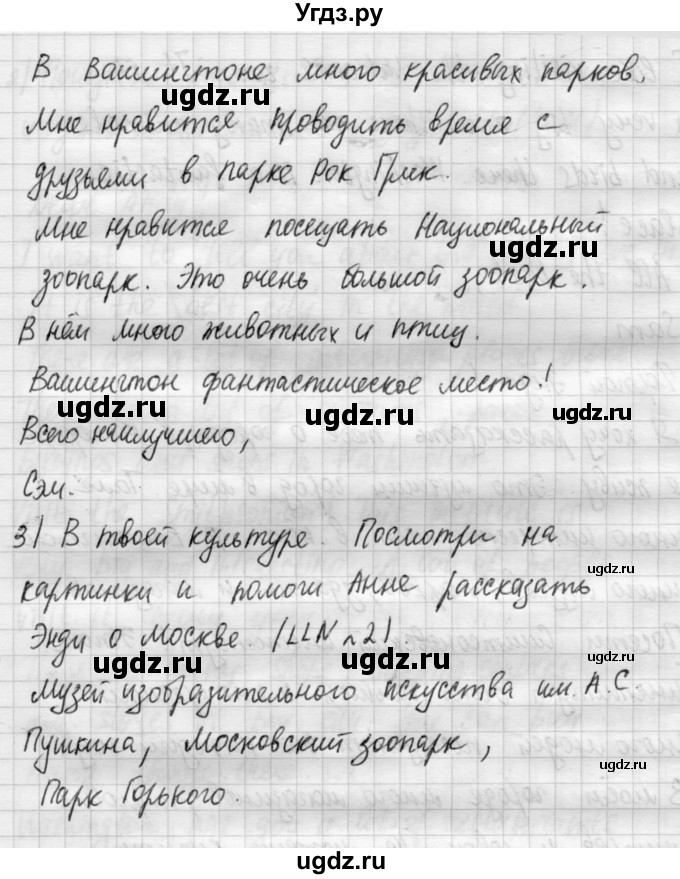 Угдз.ру
В Вашингтоне много красивых парков.
ugdz.ru
Мне нравится проводить время с
друзьями в парке Рок Грик.
Мне нравится посещать Национальный
ugdz.ru
зоопарк. Это очень большой зоопарк.
В нём много животных и птиц.
Вашингтон фантастическое место!
ugdz.ru ugdz.ru ugdz.ru
Всего наилучшего,
Сэм.
3) В твоей культуре. Посмотри на
ugdz.ru
картинки и помоги Анне рассказать
Энди о Москве. (LLN n2)
ugdz.ru ugdz.ru ugdz.ru
Музей изобразительного искусства им. А.С
Пушкина, Московский зоопарк,
ugdz.ru
Парк Горького.
ugdz.ru